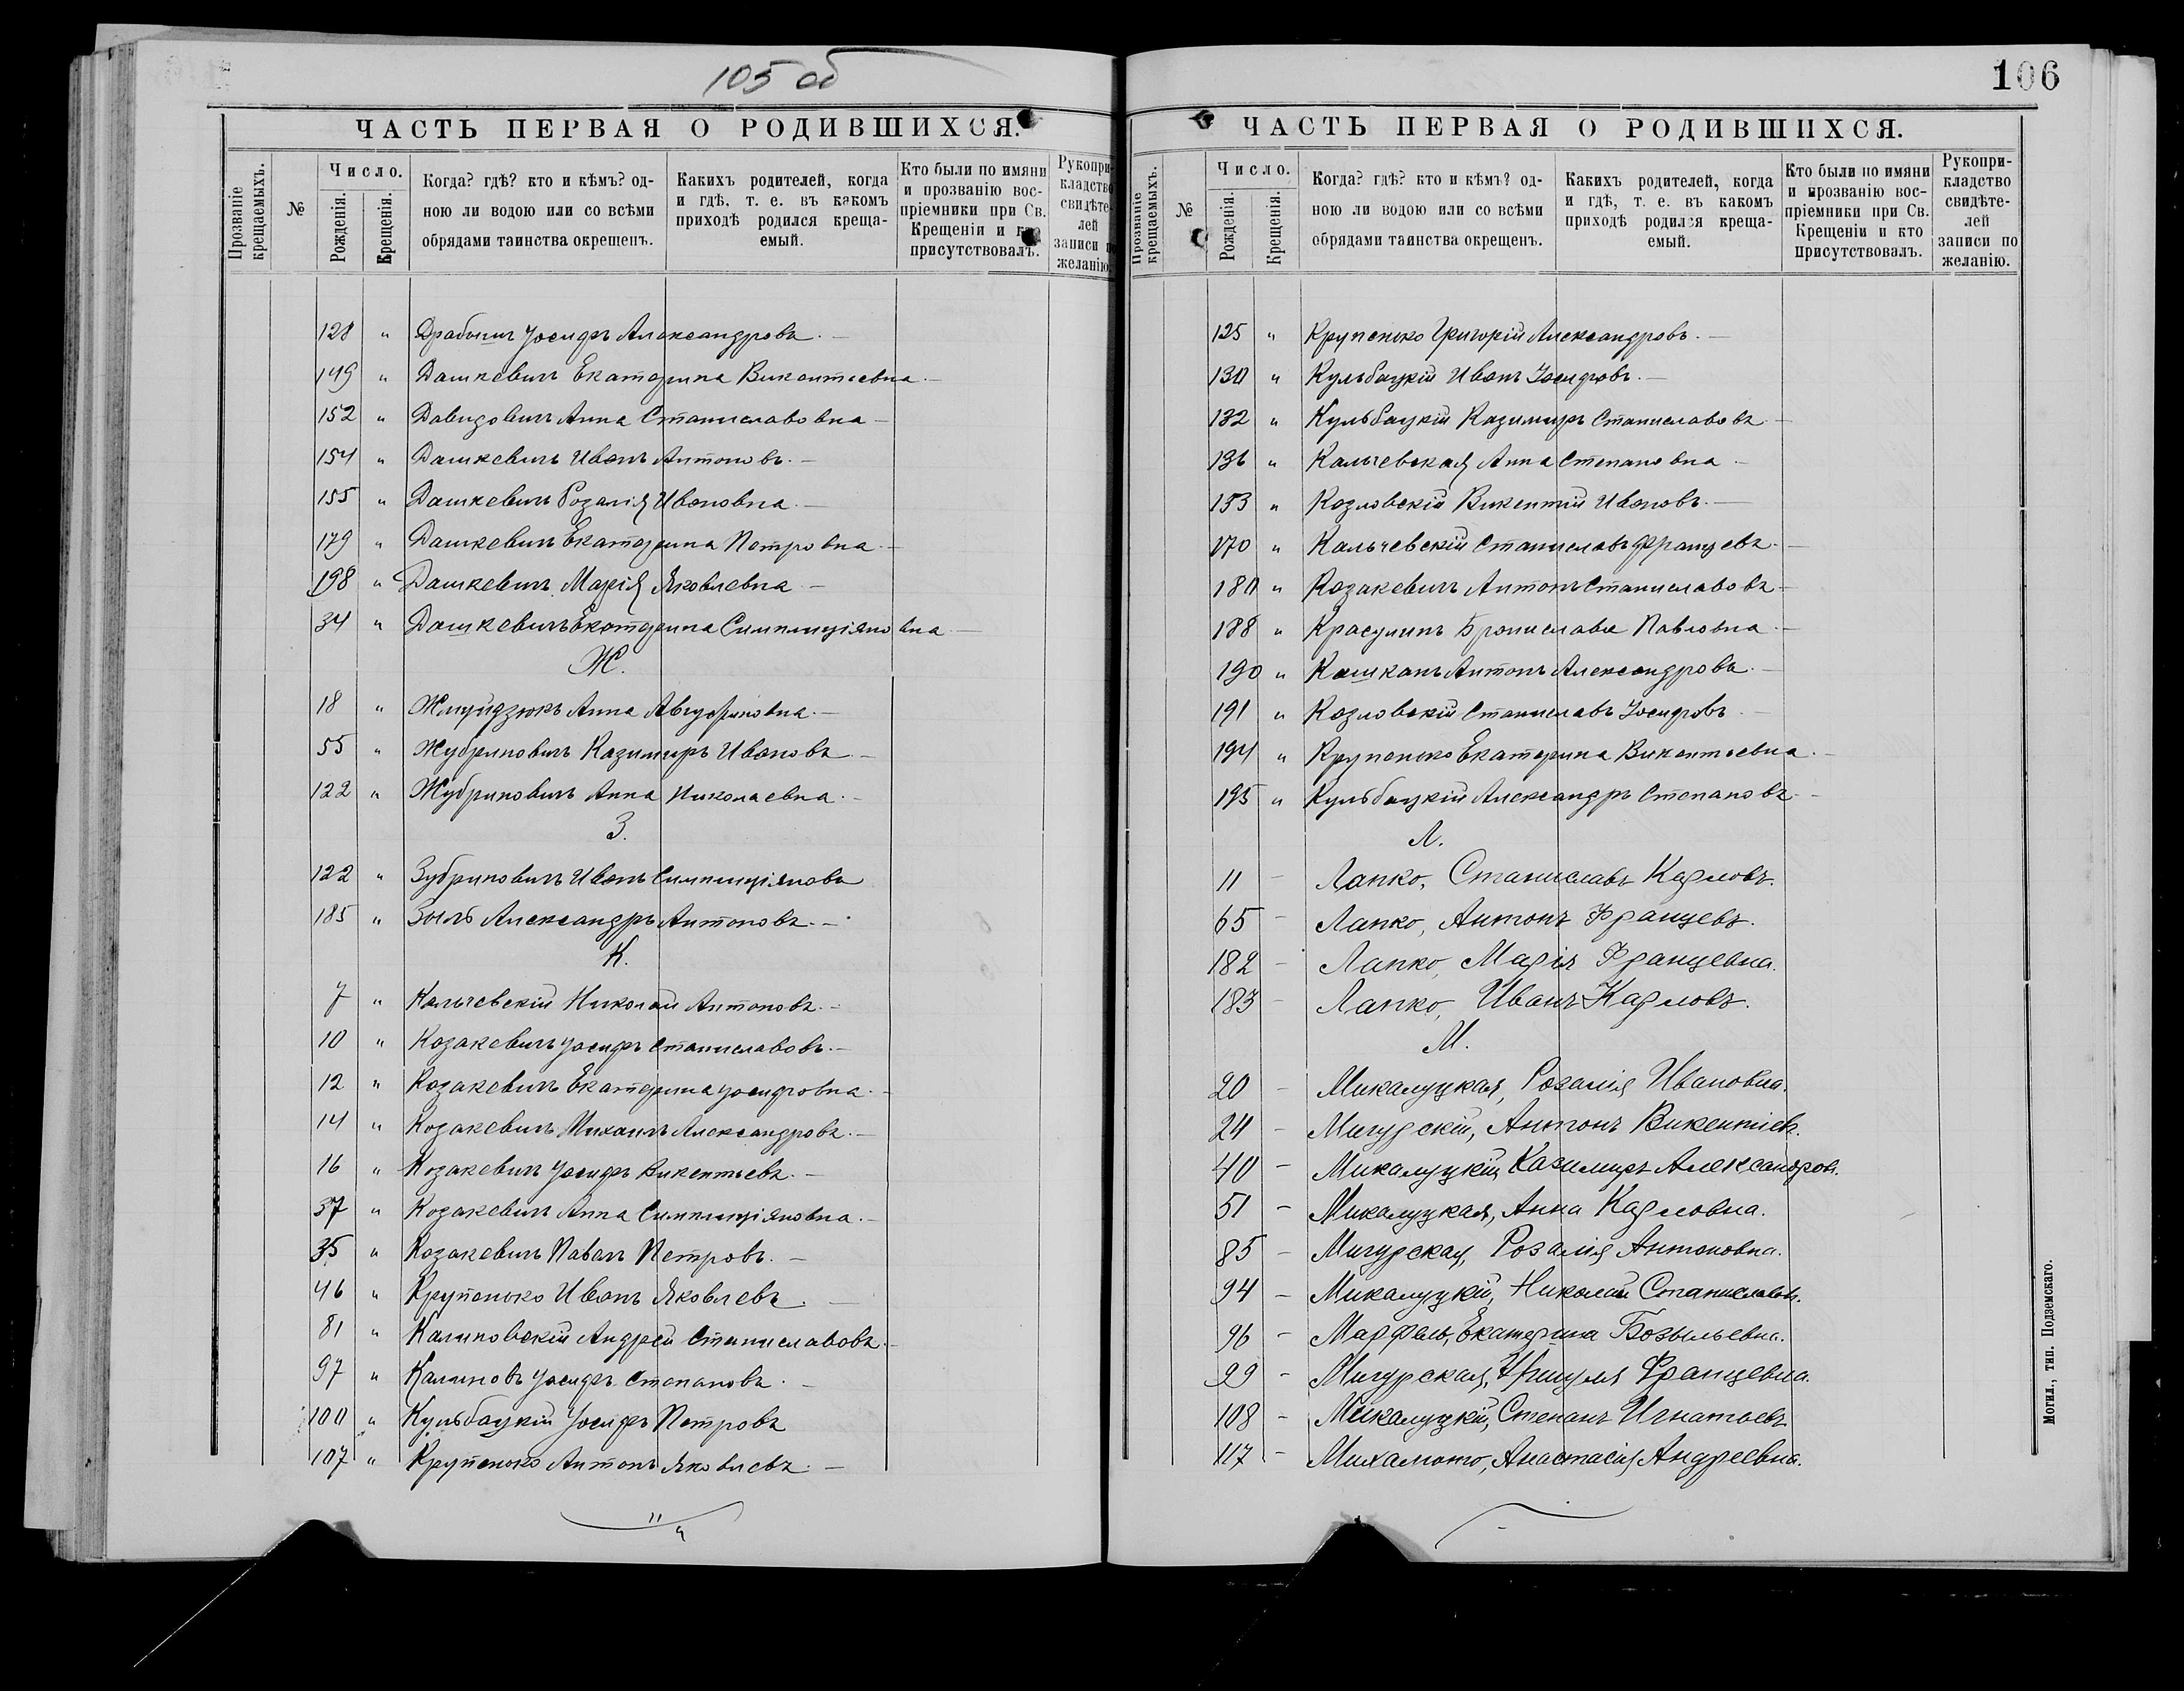 105 об
ЧАСТЬ ПЕРВАЯ О РОДИВШИХСЯ.
Прозваніе крещаемыхъ.
№
Число.
Рожденія.
Крещенія.
Когда? гдѣ? кто и кѣмъ? одною ли водою или со всѣми обрядами таинства окрещенъ.
Какихъ родителей, когда и гдѣ, т. е. въ какомъ приходѣ родился крещаемый.
Кто были по имяни и прозванію воспріемники при Св. Крещеніи и кто присутствовалъ.
Рукоприкладство свидѣтелей записи по желанію.
128 " Драбыш Іосифъ Александровъ. —
149 " Дашкевичъ Екатерина Викентьевна. —
152 " Давидовичъ Анна Станиславовна —
154 " Дашкевичъ Иванъ Антоновъ. —
155 " Дашкевичъ Розалія Ивановна. —
179 " Дашкевичъ Екатерина Петровна. —
198 " Дашкевичъ Марія Яковлевна —
34 " Дашкевичъ Екатерина Симплиціяновна —
Ж.
18 " Жмуйдзюкъ Анна —
55 " Жубриновичъ Казимиръ Ивановъ —
122 " Жубриновичъ Анна Николаевна. —
З.
122 " Зубриновичъ Иванъ Симплиціяновъ
185 " Зыль Александръ Антоновъ. —
К.
7 " Кальчевскій Николай Антоновъ. —
10 " Козакевичъ Іосифъ Станиславовъ. —
12 " Козакевичъ Екатерина Іосифовна. —
14 " Козакевичъ Михаилъ Александровъ. —
16 " Козакевичъ Іосифъ Викентьевъ. —
37 " Козакевичъ Анна Симплиціяновна. —
35 " Козакевичъ Павелъ Петровъ. —
46 " Крупенько Иванъ Яковлевъ. —
81 " Калиновскій Андрей Станиславовъ. —
97 " Калиновъ Іосифъ Степановъ. —
100 " Кульбацкій Іосифъ Петровъ
107 " Крупенько Антонъ Яковлевъ. —
106
ЧАСТЬ ПЕРВАЯ О РОДИВШИХСЯ.
Прозваніе крещаемыхъ.
№
Число.
Рожденія.
Крещенія.
Когда? гдѣ? кто и кѣмъ? одною ли водою или со всѣми обрядами таинства окрещенъ.
Какихъ родителей, когда и гдѣ, т. е. въ какомъ приходѣ родился крещаемый.
Кто были по имяни и прозванію воспріемники при Св. Крещеніи и кто присутствовалъ.
Рукоприкладство свидѣтелей записи по желанію.
125 " Крупенько Григорій Александровъ. —
130 " Кульбацкій Иванъ Іосифовъ. —
132 " Кульбацкій Казимиръ Станиславовъ —
136 " Кальчевская Анна Степановна —
153 " Козловскій Викентій Ивановъ. —
170 " Кальчевскій Станиславъ Францевъ. —
180 " Козакевичъ Антонъ Станиславовъ —
188 " Красулинъ Бронислава Павловна —
190 " Кашканъ Антонъ Александровъ. —
191 " Козловскій Станиславъ Іосифовъ —
194 " Крупенько Екатерина Викентьевна. —
195 " Кульбацкій Александръ Степановъ —
Л.
11 — Лапко, Станиславъ Карловъ.
65 — Лапко, Антонъ Францевъ.
182 — Лапко, Марія Францевна.
183 — Лапко, Иванъ Карловъ.
М.
20 — Микалуцкая, Розалія Ивановна.
24 — Мигурскій, Антонъ Викентіев.
40 — Микалуцкій, Казимиръ Александров.
51 — Микалуцкая, Анна Карловна.
85 — Мигурская, Розалія Антоновна.
94 — Микалуцкій, Николай Станиславов.
96 — Марфель, Екатерина
99 — Мигурская, Уршуля Францевна.
108 — Микалуцкій, Степанъ Игнатьевъ
117 — Анастасія Андреевна.
Могил., тип. Подземскаго.